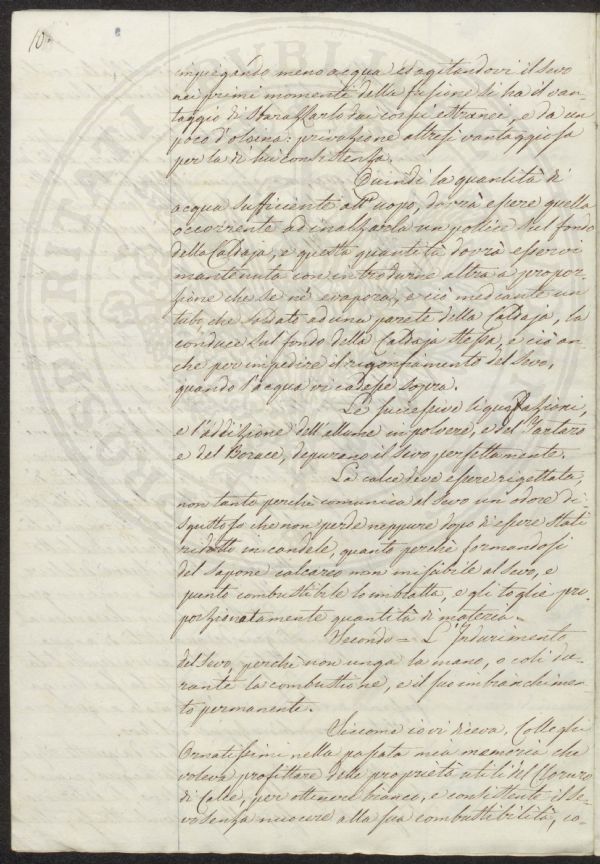 10
impiegando meno acqua ed agitandovi il sevo
nei primi momenti della fusione si ha il van-
taggio di sbarazzarlo dai corpi estranei, e da un
poco d'olaina: privazione altresì vantaggiosa
per la di lui consistenza.
Quindi la quantità di
acqua sufficiente all'uopo, dovrà essere quella
occorrente ad inalzarla un pollice sul fondo
della Caldaja, e questa quantità dovrà esservi
mantenuta con introdurne altra a propor-
zione che se né evapora, e ciò mediante un
tubo che saldato ad una parete della Caldaja, la
conduce sul fondo della Caldaja stessa, e ciò an-
che per impedire il rigonfiamento del Sevo,
quando l'acqua vi cadesse sopra.
Le successive liquefazioni,
e l'addizione dell'allume in polvere, e del Tartaro
e del Borace, depurano il Sevo perfettamente.
La calce deve essere rigettata,
non tanto perchè comunica al Sevo un odore di-
sgustoso che non perde neppure dopo di essere stati
ridotti in candele, quanto perchè formandosi
del Sapone calcareo non miscibile al Sevo, e
punto combustibile lo imbratta, e gli toglie pro-
porzionatamente quantità di materia.
Secondo = L'Indurimento
del Sevo, perchè non unga la mano, o coli du-
rante la combustione, e il suo imbianchimen-
to permanente.
Siccome io vi diceva, Colleghi
Ornatissimi nella passata mia memoria che
voleva profittare delle proprietà utili del Cloruro
di Calce, per ottenere bianco, e consistente il Se-
vo senza nuocere alla sua combustibilità, co-
PROSPERITATI PUBLI